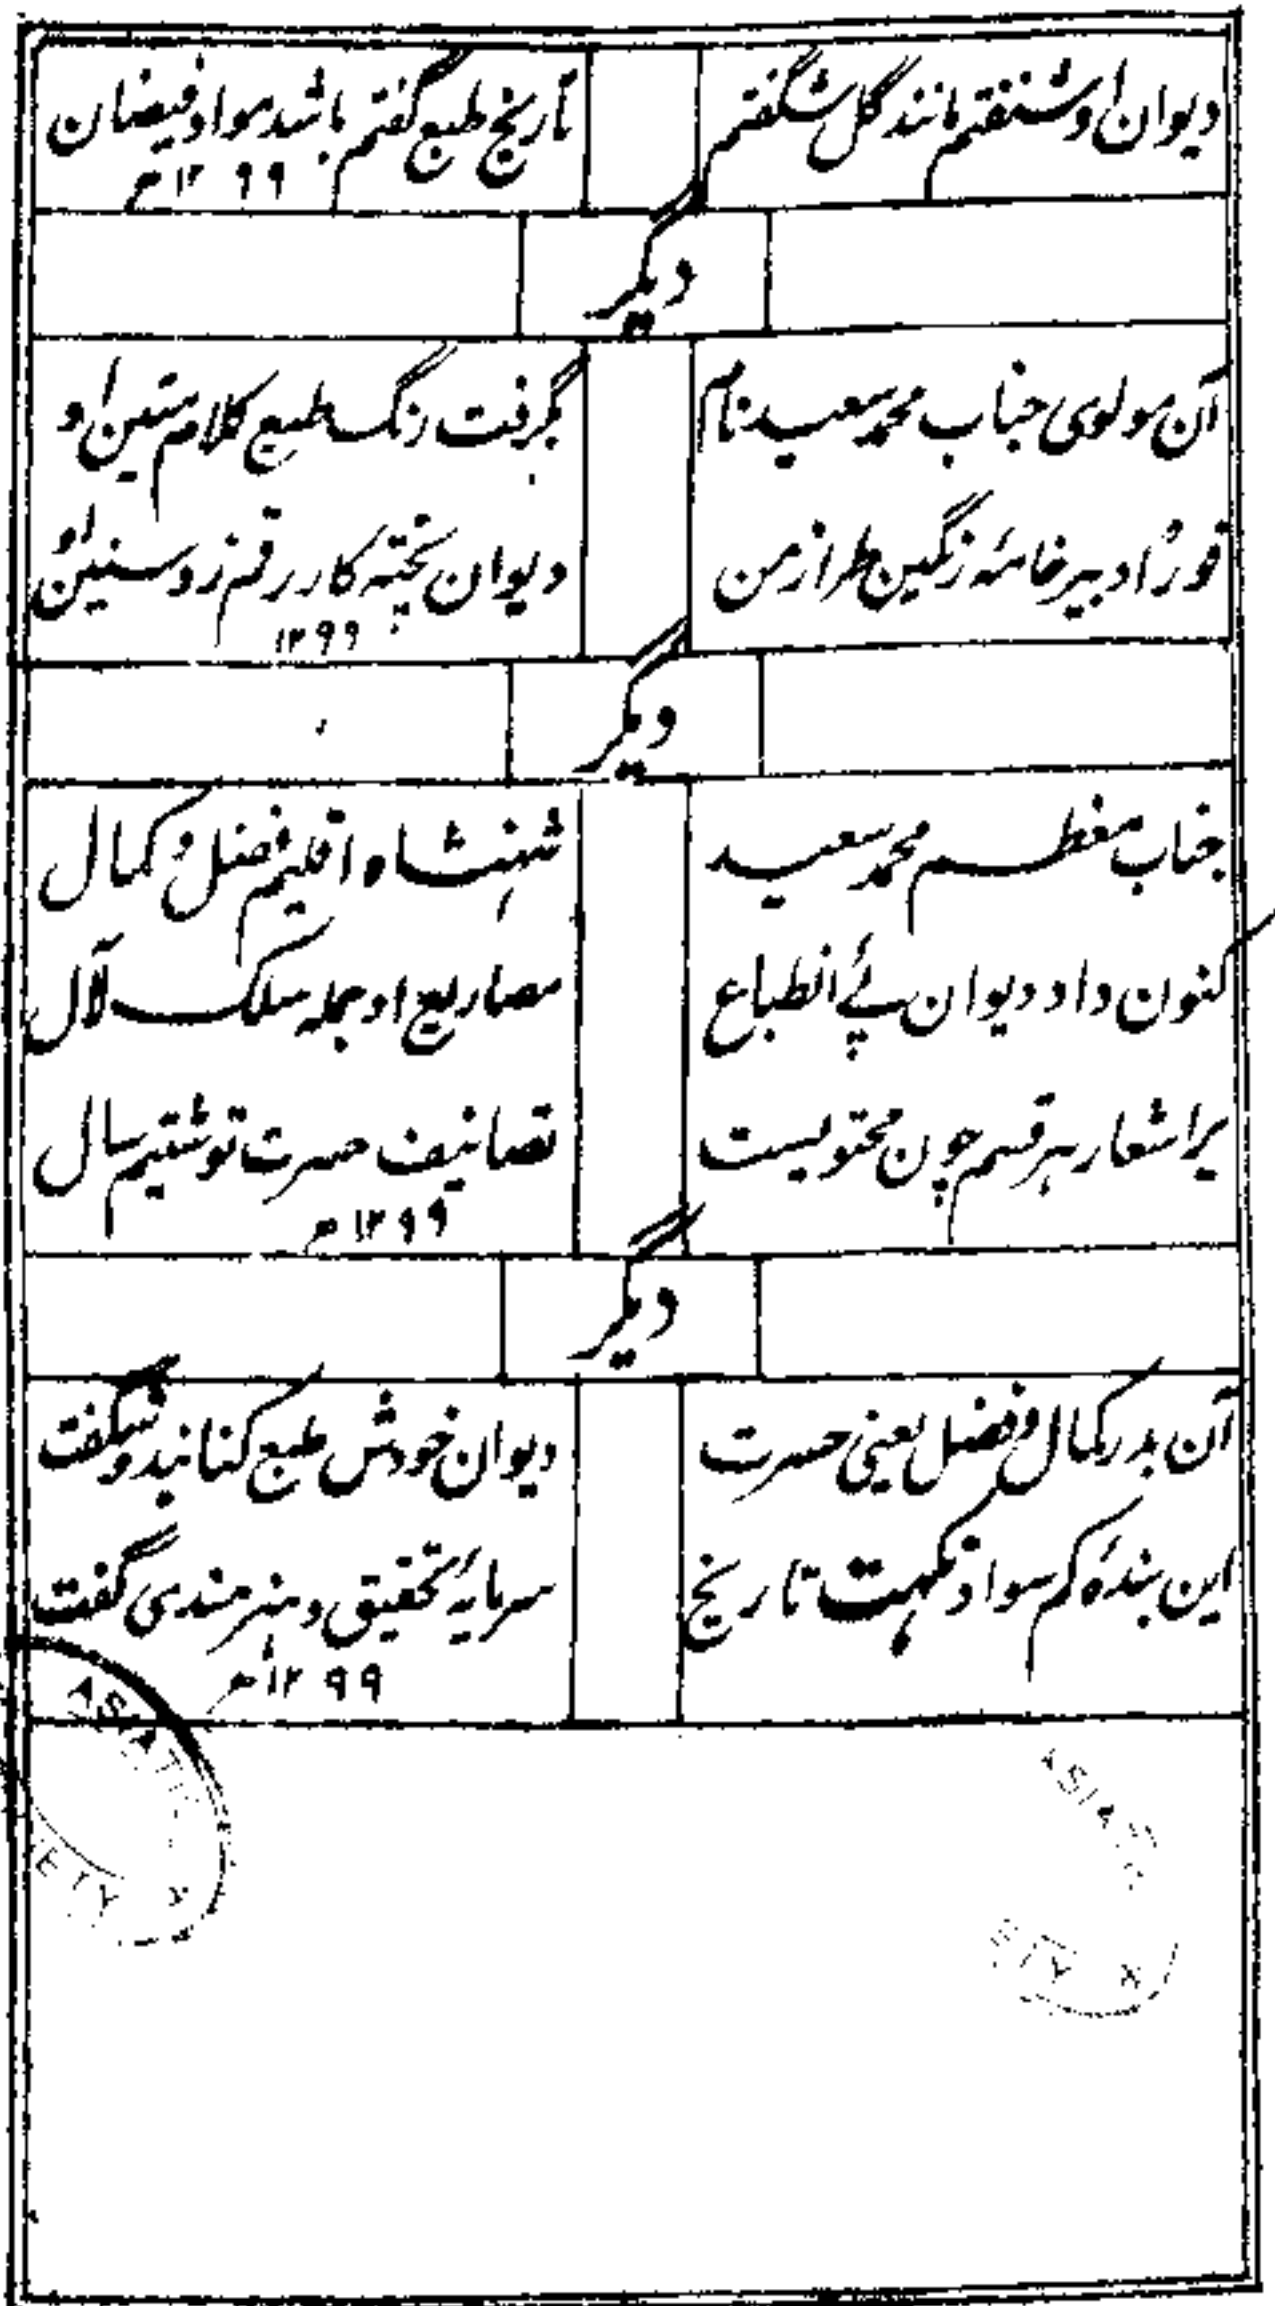 دیوان او شنفتم مانند گل شگفتم
تاریخ طبع گفتم باشد سواد فیضان
۱۲۹۹م
دیگر
آن مولوی جناب محمد سعید نام
بگرفت رنگ طبع کلام متین او
فوراً دبیر خامهٔ رنگین طراز من
دیوان پخته کار رقم زد سنین او
۱۲۹۹
دیگر
جناب معظم محمد سعید
شهنشاه اقلیم فضل و کمال
کنون داد دیوان پئے انطباع
مصاریع او جمله سلک لآل
بر اشعار هر قسم چون محتویست
تصانیف حسرت نوشتیم سال
۱۲۹۹م
دیگر
آن بدر کمال و فضل یعنی حسرت
دیوان خودش طبع کنانید و شگفت
این بندهٔ کم سواد نکهت تاریخ
سرمایهٔ تحقیق و هنرمندی گفت
۱۲۹۹م
ASIATIC
ETY
ASIATIC
ETY